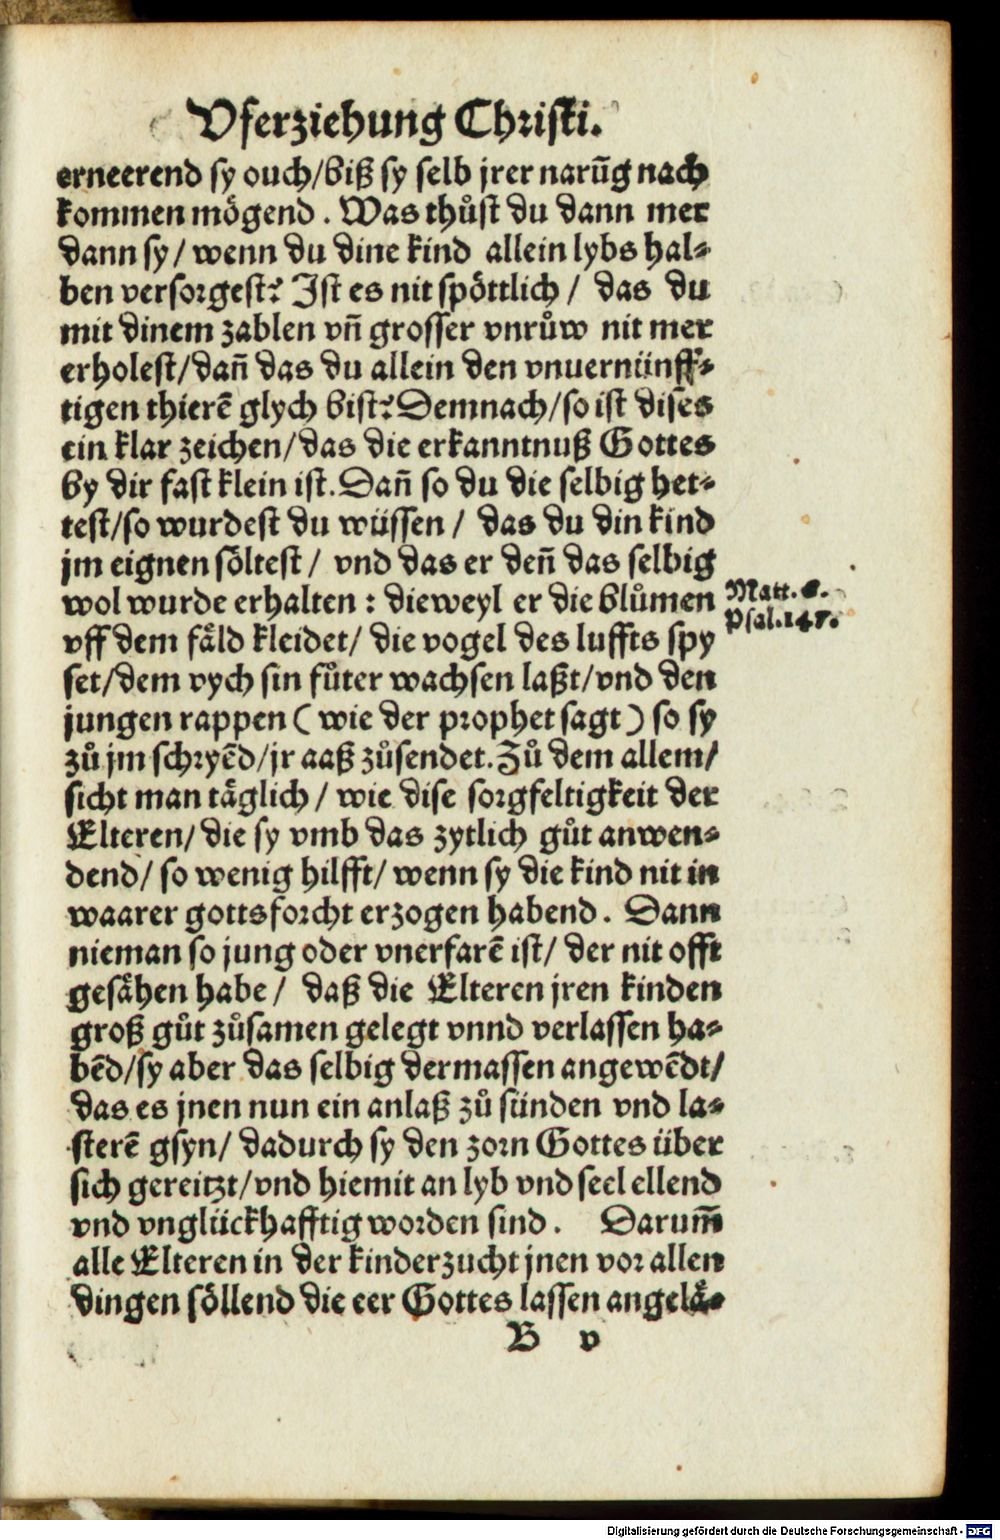 Vferziehung Christi.
erneerend sy ouch/biß sy selb jrer narūg nach
kommen mögend. Was thůst du dann mer
dann sy/ wenn du dine kind allein lybs hal-
ben versorgest? Ist es nit spöttlich/ das du
mit dinem zablen vñ grosser vnrůw nit mer
erholest/dañ das du allein den vnuernünff-
tigen thierē glych bist? Demnach/so ist dises
ein klar zeichen/das die erkanntnuß Gottes
by dir fast klein ist. Dañ so du die selbig het-
test/so wurdest du wüssen/ das du din kind
jm eignen söltest/ vnd das er deñ das selbig
wol wurde erhalten: dieweyl er die blůmen
Matt. 6.
Psal.147.
vff dem fäld kleidet/ die vogel des luffts spy
set/dem vych sin fůter wachsen laßt/vnd den
jungen rappen (wie der prophet sagt) so sy
zů jm schryēd/jr aaß zůsendet. Zů dem allem/
sicht man täglich/ wie dise sorgfeltigkeit der
Elteren/die sy vmb das zytlich gůt anwen-
dend/ so wenig hilfft/ wenn sy die kind nit in
waarer gottsforcht erzogen habend. Dann
nieman so jung oder vnerfarē ist/ der nit offt
gesähen habe/ daß die Elteren jren kinden
groß gůt zůsamen gelegt vnnd verlassen ha-
bēd/sy aber das selbig dermassen angewēdt/
das es jnen nun ein anlaß zů sünden vnd la-
sterē gsyn/ dadurch sy den zorn Gottes über
sich gereitzt/vnd hiemit an lyb vnd seel ellend
vnd vnglückhafftig worden sind. Darum̄
alle Elteren in der kinderzucht jnen vor allen
dingen söllend die eer Gottes lassen angelä-
B v
Digitalisierung gefördert durch die Deutsche Forschungsgemeinschaft - DFG